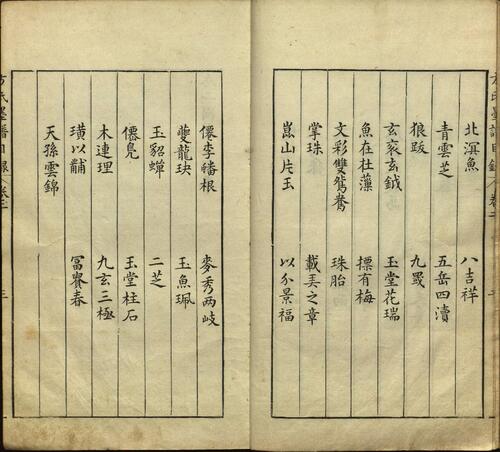 北溟魚　八吉祥
青雲芝　五岳四瀆
狼跋　九罭
玄衮玄鉞　玉堂花瑞
魚在杜藻　摽有梅
文彩雙鴛鴦　珠胎
掌珠　載弄之章
崑山片玉　以介景福
僊李蟠根　麥秀两岐
夔龍玦　玉魚珮
玉貂蟬　二芝
僊鳧　玉堂柱石
木連理　九玄三極
璜以黼　冨春
天孫雲錦
方氏墨譜目錄　卷三